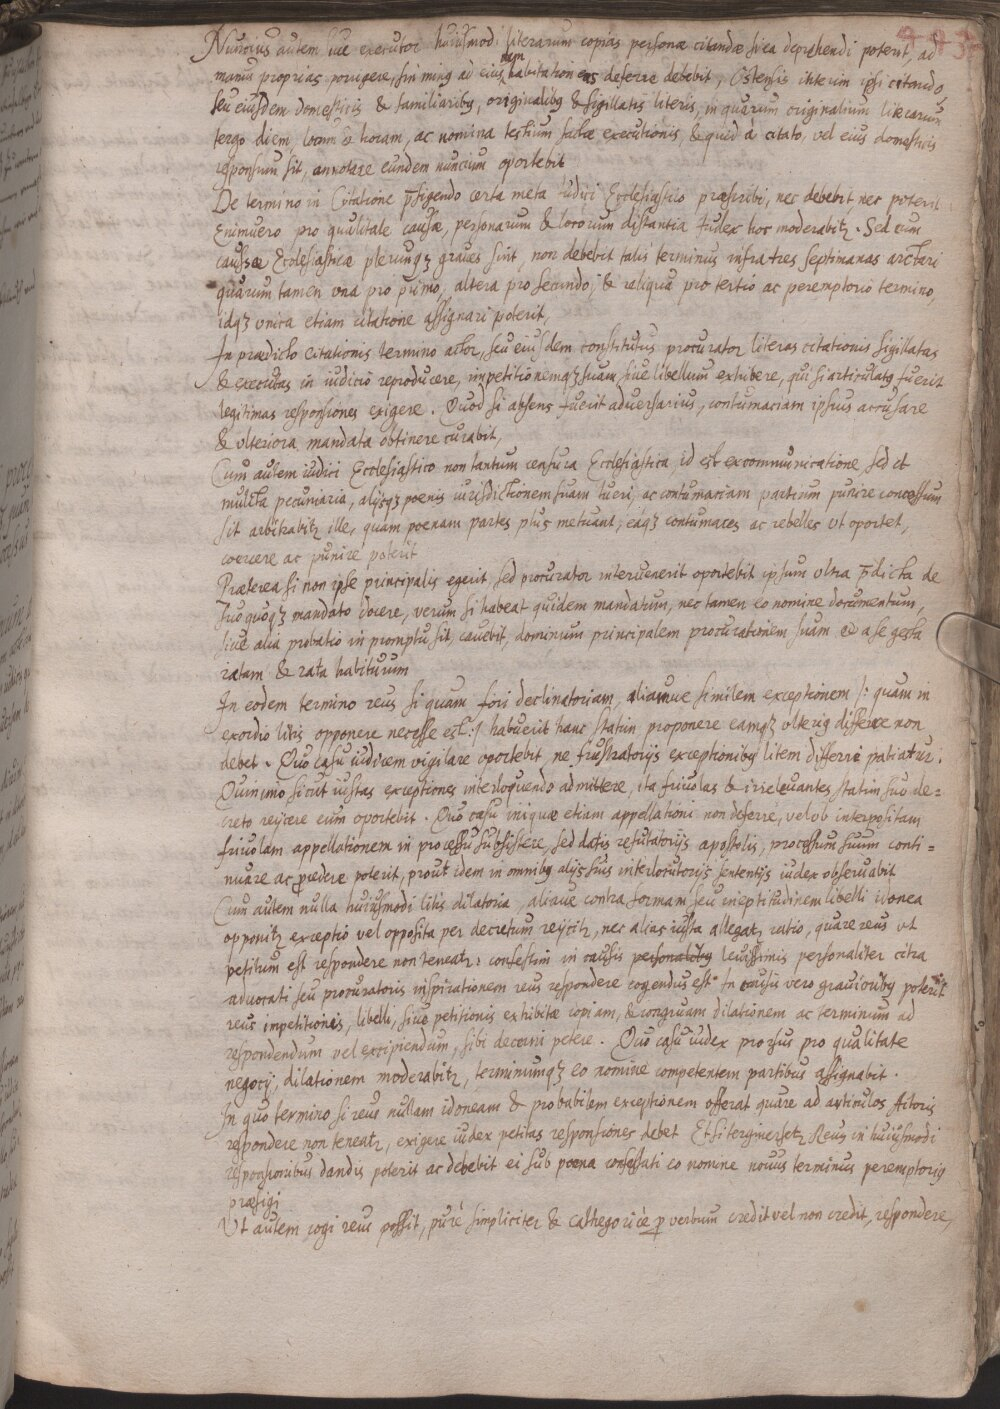 493
Nuncius autem siue executor huiusmodi literarum copias personæ citandæ si ea deprehendi poterit, ad
manus proprias porrigere, sin minꝰ ad eius habitationem deferre debebit, Ostensis interim ipsi citando,
seu eiusdem domesticis & familiaribꝰ, originalibꝰ & sigillatis literis, in quarum originalium literarum
tergo diem, locum & horam, ac nomina testium factæ executionis, & quid a citato, vel eius domesticis
responsum sit, annotare eundem nuncium oportebit
De termino in Citatione p̄figendo certa meta Iudici Ecclesiastico præscribi, nec debebit nec poterit
Enimuero pro qualitate causæ, personarum & locorum distantia Iudex hoc moderabitꝛ. Sed cum
caussæ Ecclesiasticæ plerunqꝫ graues sint, non debebit talis terminus infra tres septimanas arctari
quarum tamen vna pro primo, altera pro secundo, & reliqua pro tertio ac peremptorio termino,
idqꝫ vnica etiam citatione assignari poterit,
In prædicto citationis termino actor, seu eiusdem constitutus procurator literas citationis sigillatas
& executas in iudicio reproducere, impetitionemqꝫ suam, siue libellum exhibere, qui si articulatꝰ fuerit
legitimas responsiones exigere. Quod si absens fuerit aduersarius, contumaciam ipsius accusare
& vlteriora mandata obtinere curabit,
Cum autem iudici Ecclesiastico non tantum censura Ecclesiastica id est excommunicatione sed et
mulcta pecuniaria, alijsqꝫ poenis iurisdictionem suam tueri, ac contumaciam partium punire concessum
sit arbitrabitꝛ ille, quam poenam partes plus metuant, eaqꝫ contumaces ac rebelles vt oportet,
coercere ac punire poterit
Præterea si non ipse principalis egerit, sed procurator interuenerit oportebit ipsum vltra p̄dicta de
suo quoqꝫ mandato docere, verum si habeat quidem mandatum, nec tamen eo nomine documentum,
siue alia probatio in promptu sit, cauebit, dominum principalem procurationem suam et a se gesta
ratam & rata habiturum
In eodem termino reus si quam fori declinatoriam, aliamue similem exceptionem /: quam in
exordio litis opponere necesse est :/ habuerit hanc statim proponere eamqꝫ vlteriꝰ differre non
debet. Quo casu iudicem vigilare oportebit, ne frustratorijs exceptionibꝰ litem differri patiatur.
Quinimo sicut iustas exceptiones interloquendo admittere, ita friuolas & irreleuantes statim suo de=
creto reijcere eum oportebit. Quo casu iniquæ etiam appellationi non deferre, vel ob interpositam
friuolam appellationem in processu subsistere, sed datis refutatorijs apostolis, processum suum conti=
nuare ac p̱cedere poterit, prout idem in omnibꝰ alijs suis interlocutorijs sententijs iudex obseruabit
Cum autem nulla huiusmodi litis dilatoria, aliaue contra formam seu ineptitudinem libelli idonea
opponitꝛ exceptio vel opposita per decretum reijcitꝛ, nec alias iusta allegatꝛ ratio, quare reus vt
petitum est respondere non teneatꝛ: confestim in causis personalibꝰ leuissimis personaliter citra
aduocati seu procuratoris inspirationem reus respondere cogendus est. In causis vero grauioribꝰ poterit
reus impetitionis, libelli, siue petitionis exhibitæ copiam, & congruam dilationem ac terminum ad
respondendum vel excipiendum, sibi decerni petere. Quo casu iudex prorsus pro qualitate
negocij, dilationem moderabitꝛ, terminumqꝫ eo nomine competentem partibus assignabit.
In quo termino si reus nullam idoneam & probabilem exceptionem offerat quare ad articulos Actoris
respondere non teneatꝛ, exigere iudex petitas responsiones debet Et si tergiuersetꝛ Reus in huiusmodi
responsionibus dandis poterit ac debebit ei sub poena confessati eo nomine nouus terminus peremptoriꝰ
præfigi
Vt autem cogi reus possit, purè simpliciter & cathegoricè p̱ verbum credit vel non credit, respondere,